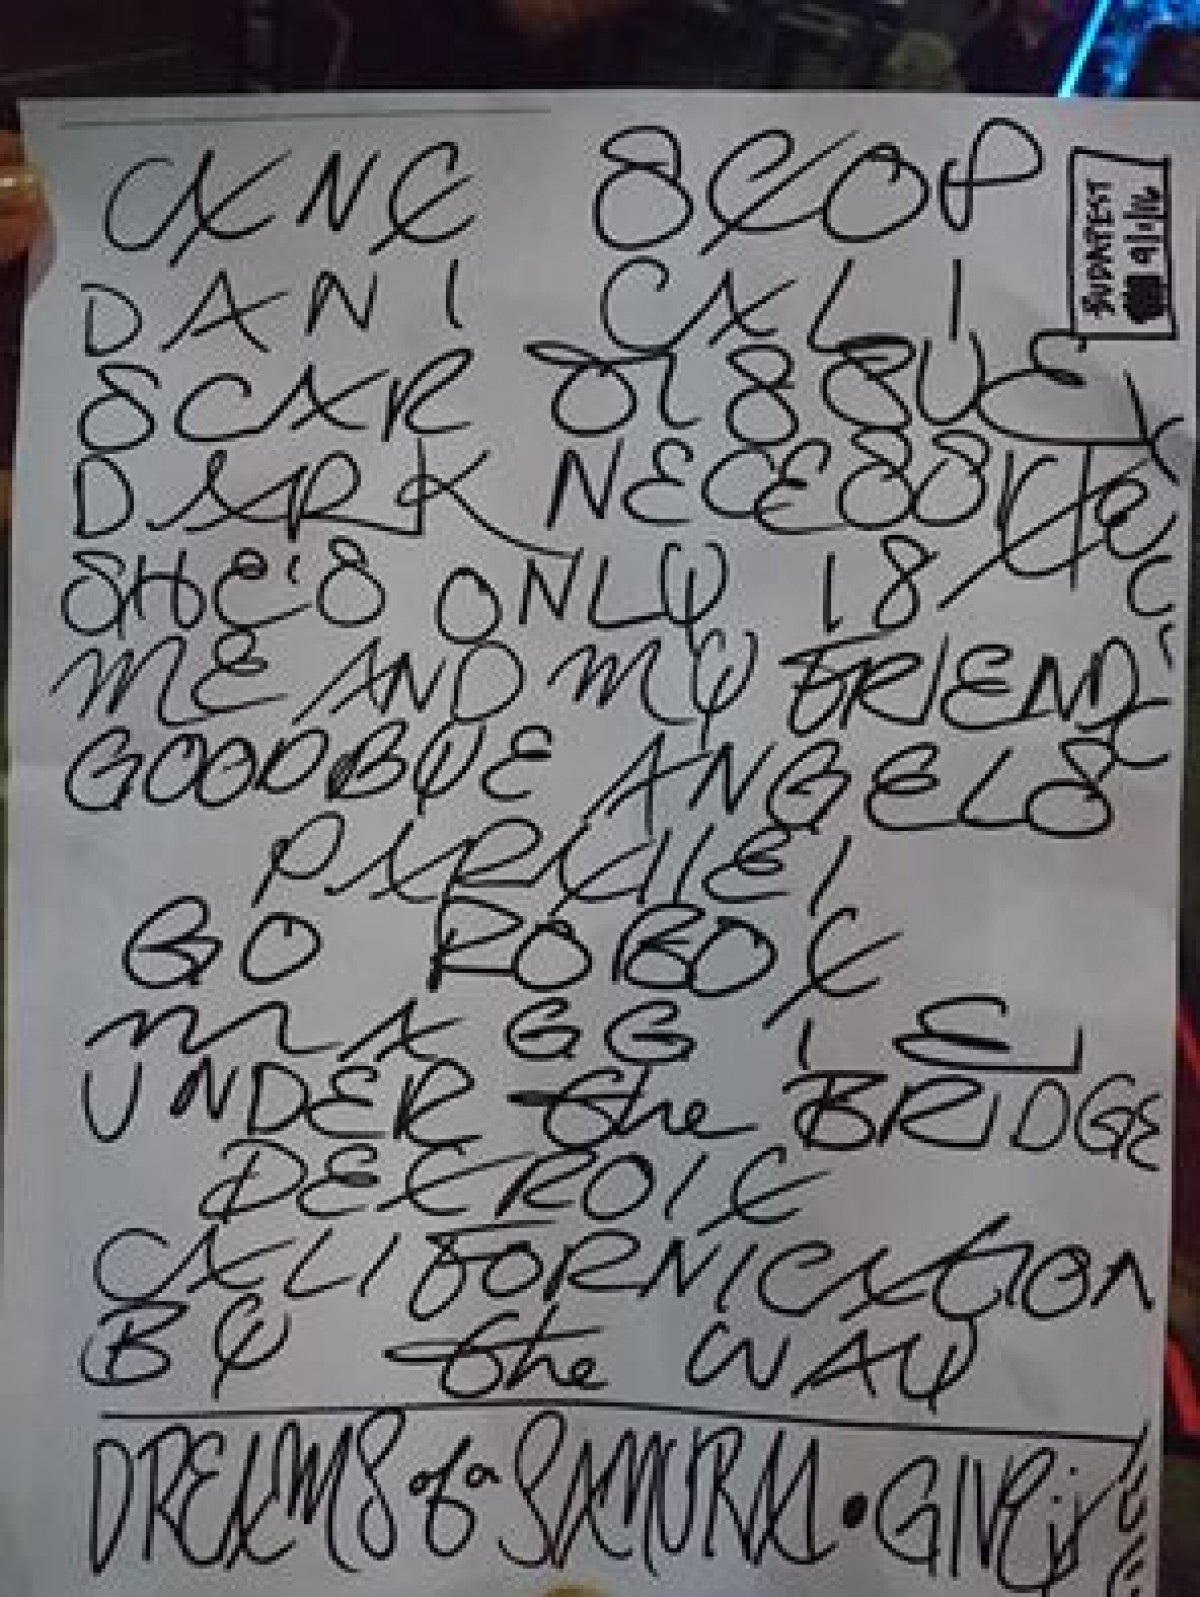 CAN'T STOP
DANI CALI
SCAR TISSUE
DARK NECESSITIES
SHE'S ONLY 18
ME AND MY FRIENDS
GOODBYE ANGELS
PARALLEL
GO ROBOT
MAGGIE
UNDER the BRIDGE
DETROIT
CALIFORNICATION
BY the WAY
DREAMS of a SAMURAI • GIVE it
BUDAPEST
9/1/16